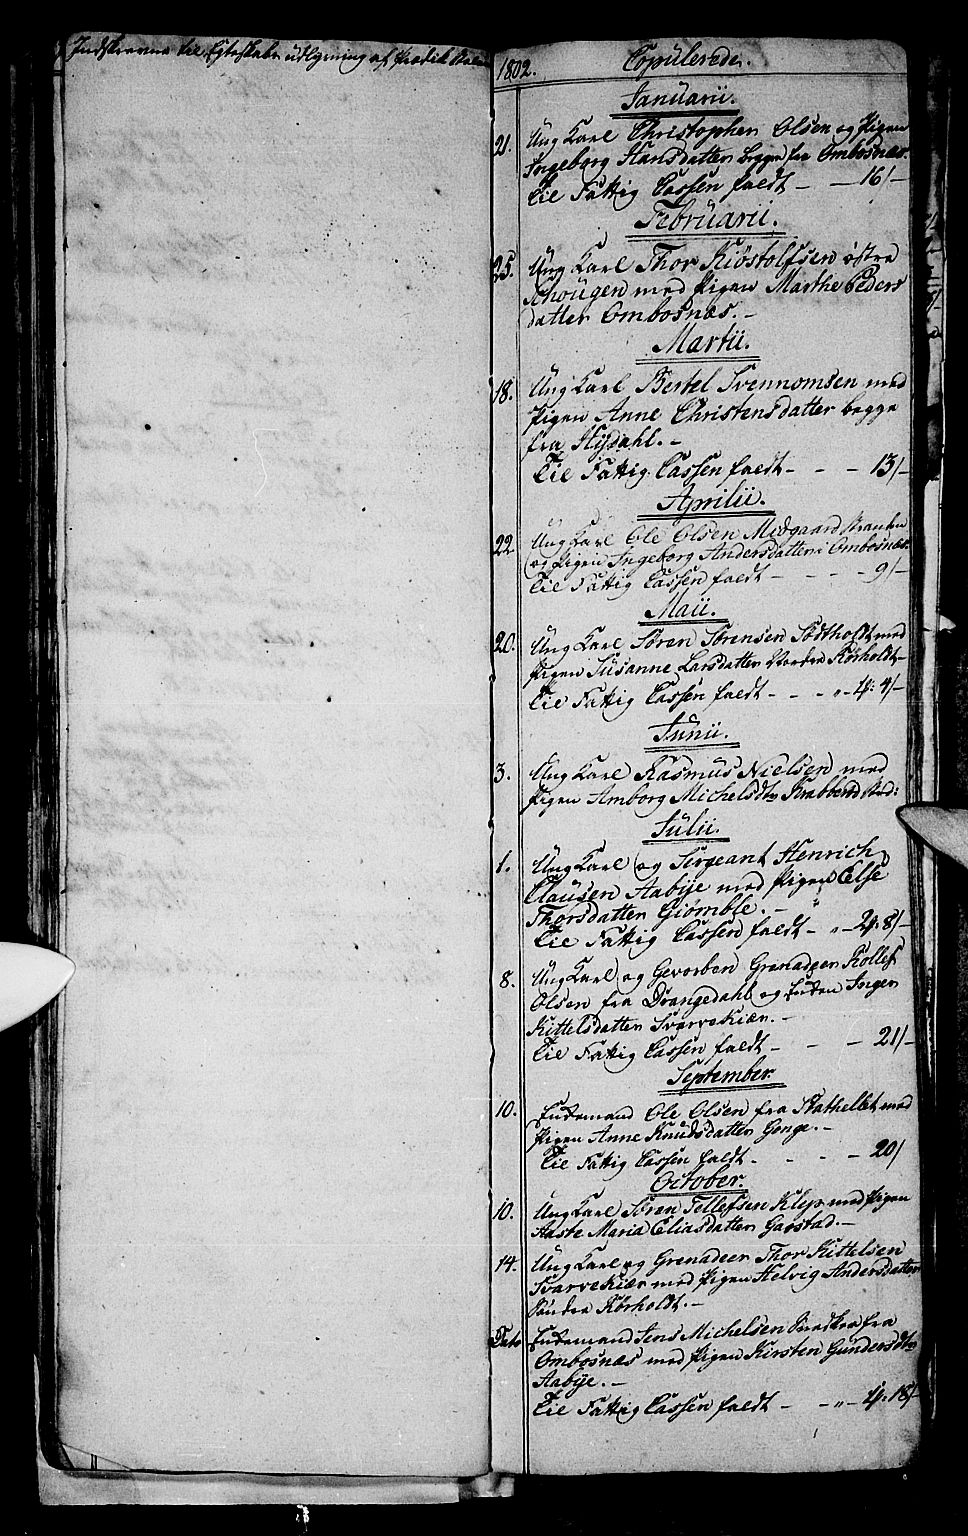 Indskrevne til Egteskabs udlysning af
1802. Copulerede.
Januarii.
21. Ung Karl Christopher Olsen og Pigen
Ingeborg Hansdatter begge fra Ombosnæs.
Til Fattig Cassen faldt - - 16/-
Februarii.
25. Ung Karl Thor Kiøstolfsen østre
Schougen med Pigen Marthe Peders
datter Ombosnæs. -
Martii.
18. Ung Karl Bertel Svennomsen med
Pigen Anne Christensdatter begge
fra Hydahl. -
Til Fattig Cassen faldt - - - 13/-
Aprilii.
22. Ung Karl Ole Olsen Midgaard
og Pigen Ingeborg Andersdatter Ombosnæs.
Til Fattig Cassen faldt - - - 9/-
Maii.
20. Ung Karl Søren Sørensen Sødtholdt med
Pigen Susanne Larsdatter Kørholdt -
Til Fattig Cassen faldt - - - „ - 1#: 4/-
Junii.
3. Ung Karl Rasmus Nielsen med
Pigen Amborg Michelsdtr
Julii.
1. Ung Karl og Sergeant Henrich
Clausen Aabije med Pigen Else
Thorsdatter Giømble. -
Til Fattig Cassen faldt - „ - 2#: 8/-
8. Ung Karl og Gevorben Grenadeer Kollef
Olsen fra Drangedahl og Enken Inger
Kittelsdatter Svarvekiær. -
Til Fattig Cassen faldt - - - 21/-
September.
10. Enkemand Ole Olsen fra Stathellet med
Pigen Anne Knudsdatter Gonge. -
Til Fattig Cassen faldt - - - - 20/
October.
10. Ung Karl Søren Tellefsen Klep med Pigen
Aaste Maria Eliasdatter Garstad. -
14. Ung Karl og Grenadeer Thor Kittelsen
Svarvekiær med Pigen Helvig Andersdatter
Søndre Kørholdt. -
Dato Enkemand Jens Michelsen fra
Ombosnæs med Pigen Kirsten Gundersdtr
Aabije. -
Til Fattig Cassen faldt - - „ - 1#: 18/-